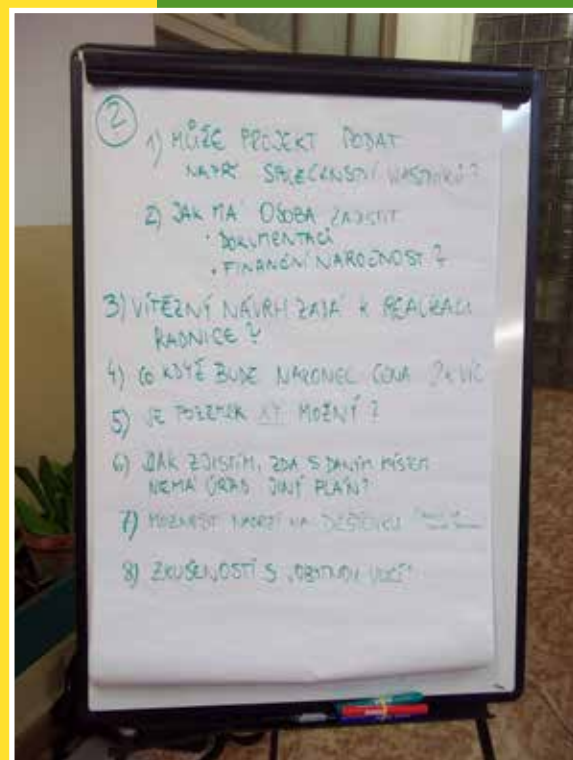 2
1) MŮŽE PROJEKT PODAT
NAPŘ SPOLEČENSTVÍ VLASTNÍKŮ?
2) JAK MÁ OSOBA ZAJISTIT
• DOKUMENTACI
• FINANČNÍ NÁROČNOST?
3) VÍTĚZNÝ NÁVRH ZADÁ K REALIZACI
RADNICE?
4) CO KDYŽ BUDE NAKONEC CENA 2x VÍC
5) JE POZEMEK XY MOŽNÝ?
6) JAK ZJISTÍM, ZDA S DANÝM MÍSTEM
NEMÁ ÚŘAD JINÝ PLÁN?
7) MOŽNOST NÁDRŽÍ NA DEŠŤOVKU
8) ZKUŠENOSTI S